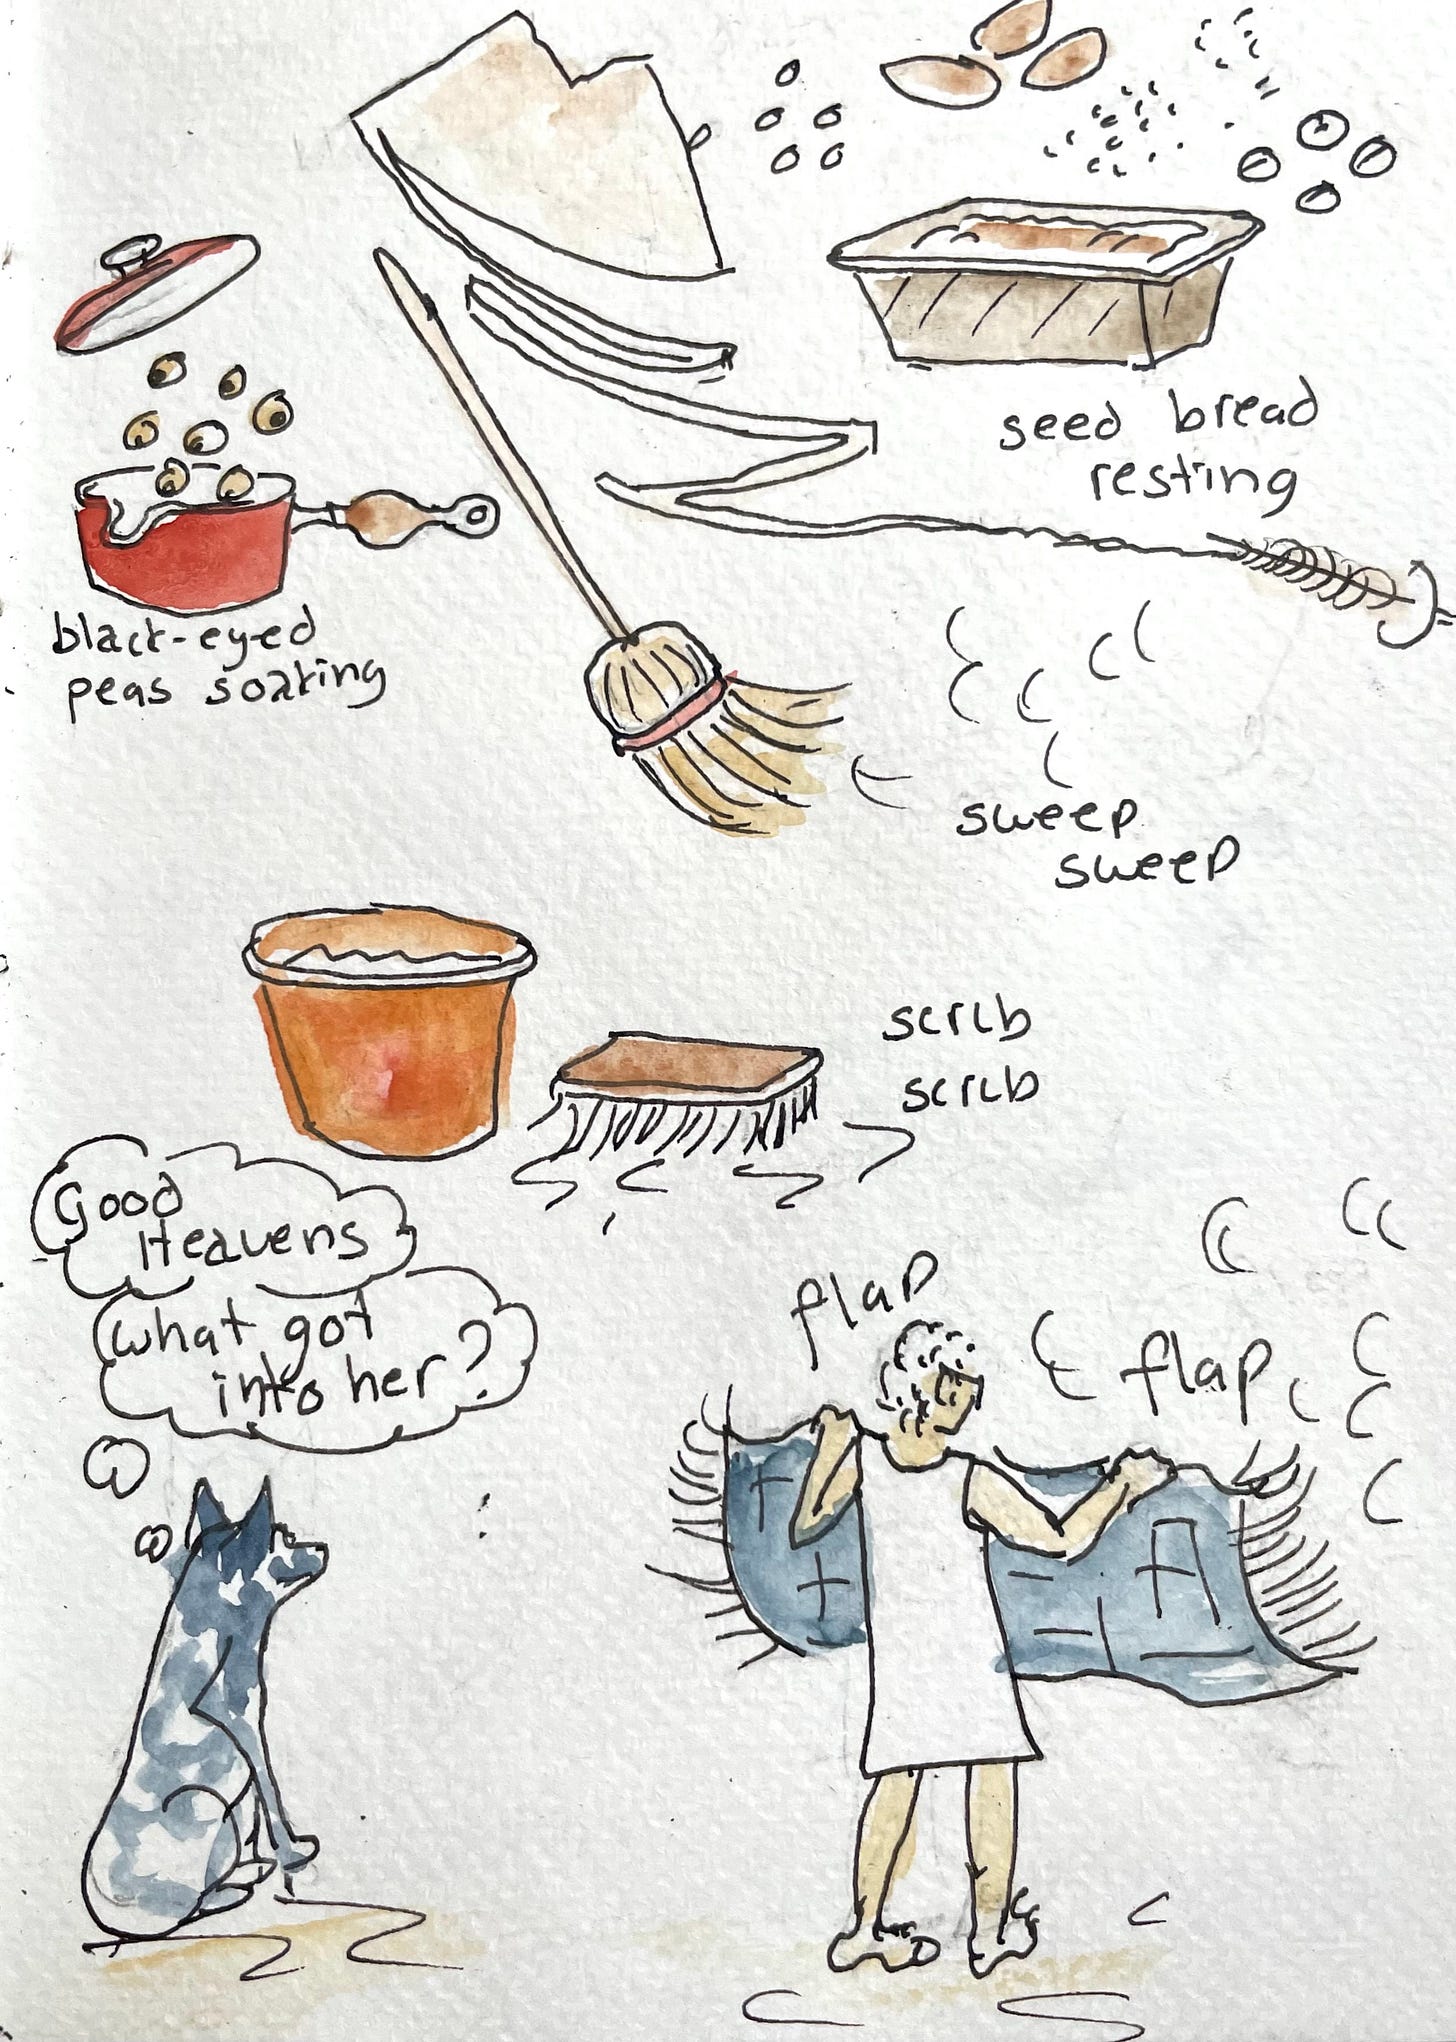 seed bread
resting
black-eyed
peas soaking
sweep
sweep
scrub
scrub
Good
Heavens
what got
into her?
flap
flap